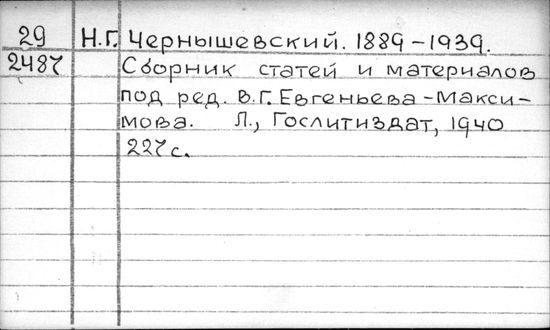 29 Н.Г. Чернышевский. 1889-1939.
2487 Сборник статей и материалов
под ред. В.Г. Евгеньева-Макси-
мова. Л., Гослитиздат, 1940
227 с.